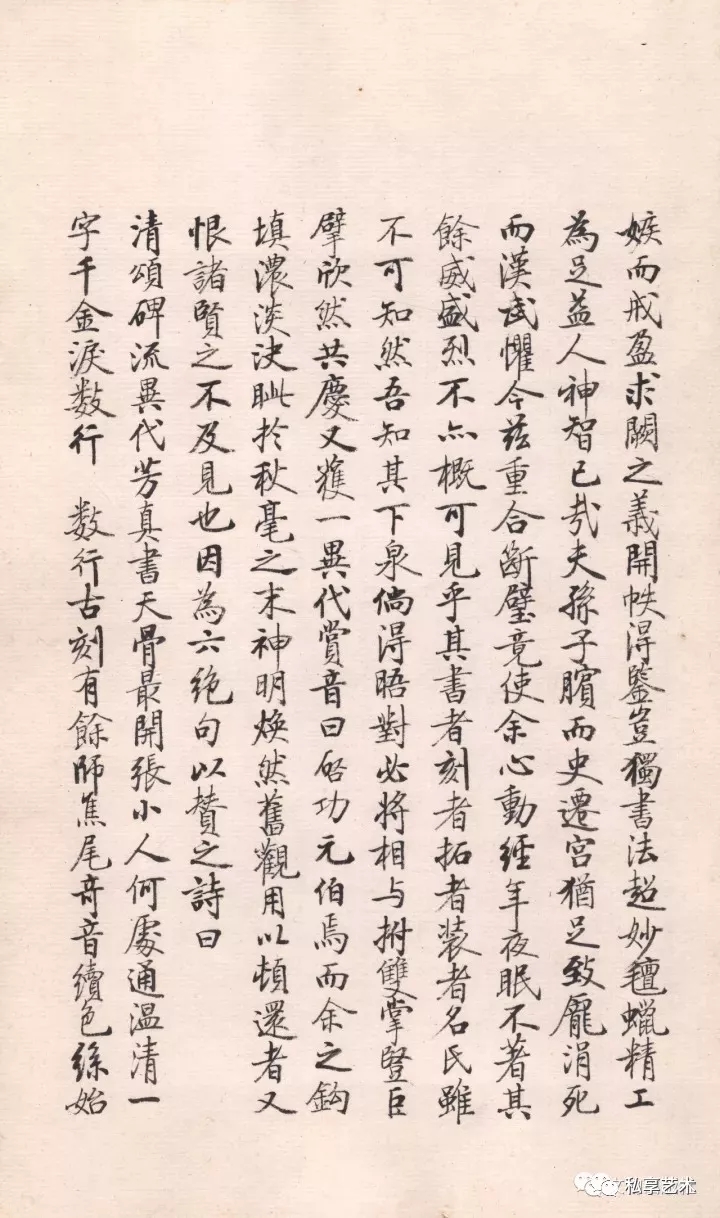 嫉而戒盈求闕之義開帙得鑒豈獨書法超妙氊蠟精工
為足益人神智已哉夫孫子臏而史遷宮猶足致龐涓死
而漢武懼今茲重合斷璧竟使余心動經年夜眠不著其
餘威盛烈不亦概可見乎其書者刻者拓者装者名氏雖
不可知然吾知其下泉倘得晤對必將相与拊雙掌豎巨
擘欣然共慶又獲一異代賞音曰啓功元伯焉而余之鈎
填濃淡決眦於秋毫之末神明煥然舊觀用以頓還者又
恨諸賢之不及見也因為六絶句以賛之詩曰
清頌碑流異代芳真書天骨最開張小人何處通温清一
字千金淚数行 数行古刻有餘師焦尾奇音續色絲始
私享艺术